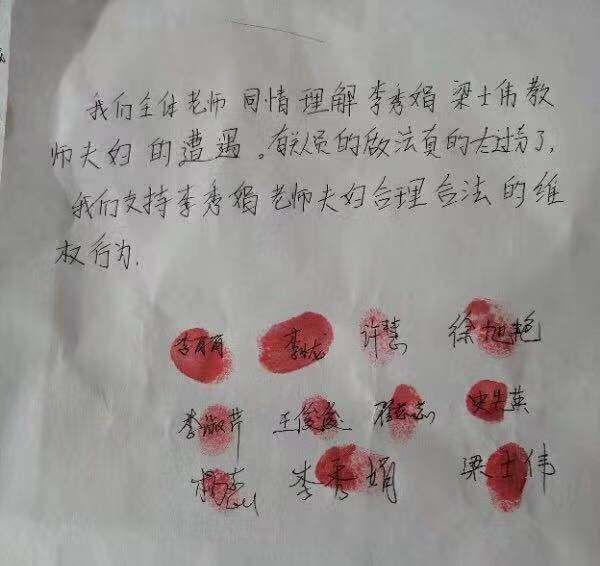 我们全体老师同情理解李秀娟梁士伟教
师夫妇的遭遇。有关人员的做法真的太过分了,
我们支持李秀娟老师夫妇合理合法的维
权行为.
李 许慧 徐旭艳
李淑芹 王俊 史先英
李秀娟 梁士伟